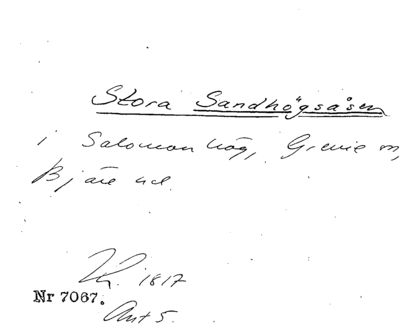 Stora Sandhögsåsen
i Salomonhög, Grevie sn,
Bjäre hd.
1817
Nr 7067.
Ant 5.